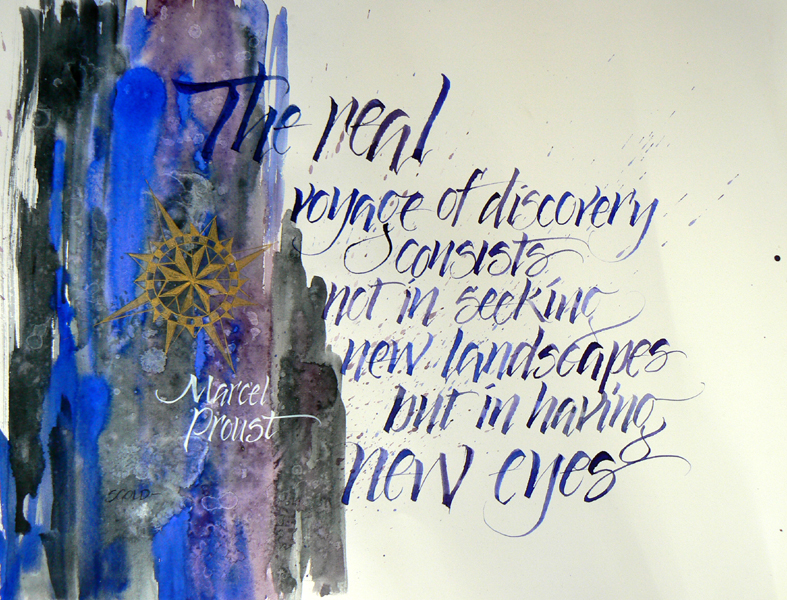 The real
voyage of discovery
consists
not in seeking
new landscapes
but in having
new eyes
Marcel
Proust